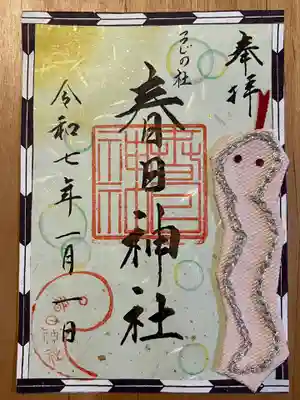 奉拝
ろじの社
春日神社
春日神社
令和七年一月一日
春日神社